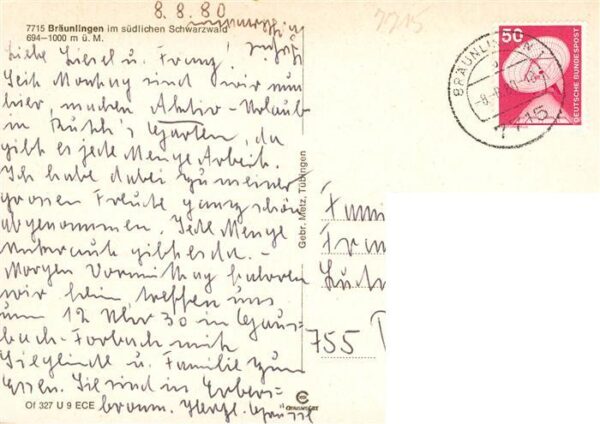 8.8.80
7715
7715 Bräunlingen im südlichen Schwarzwald
694–1000 m ü. M.
Liebe Liesel u. Franz!
Seit Montag sind wir nun
hier, machen Aktiv-Urlaub
in Ruth's Garten, da
gibt es jede Menge Arbeit.
Ich habe dabei zu meiner
grossen Freude ganz schön
abgenommen. Jede Menge
Unkraut gibt es da. –
Morgen Vormittag fahren
wir heim, treffen uns
um 12 Uhr 30 in Gaus-
bach-Forbach mit
Sieglinde u. Familie zum
Essen. Sie sind in Erbers-
bronn. Herzl. Grüsse
Of 327 U 9 ECE
Gebr. Metz, Tübingen
50
DEUTSCHE BUNDESPOST
BRÄUNLINGEN 1
-8.-8.80
7715
Fami
Fran
755